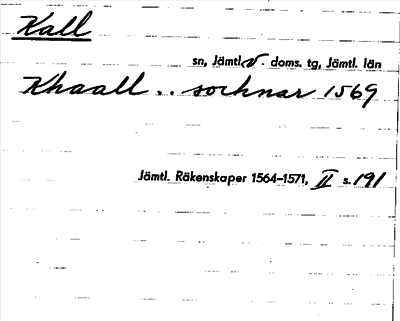 Kall
sn, Jämtl. v. doms. tg, Jämtl. län
Khaall .. sochnar 1569
Jämtl. Räkenskaper 1564-1571, II s. 191